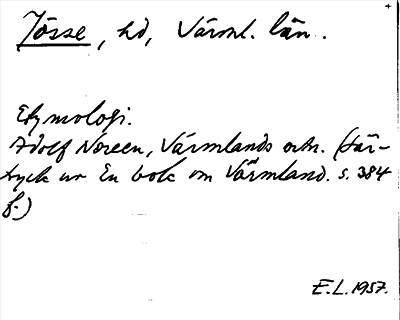 Jösse, hd, Värml. län.
Etymologi.
Adolf Noreen, Värmlands ortn. (Sär-
tryck ur En bok om Värmland. s. 384
f.)
E.L. 1957.